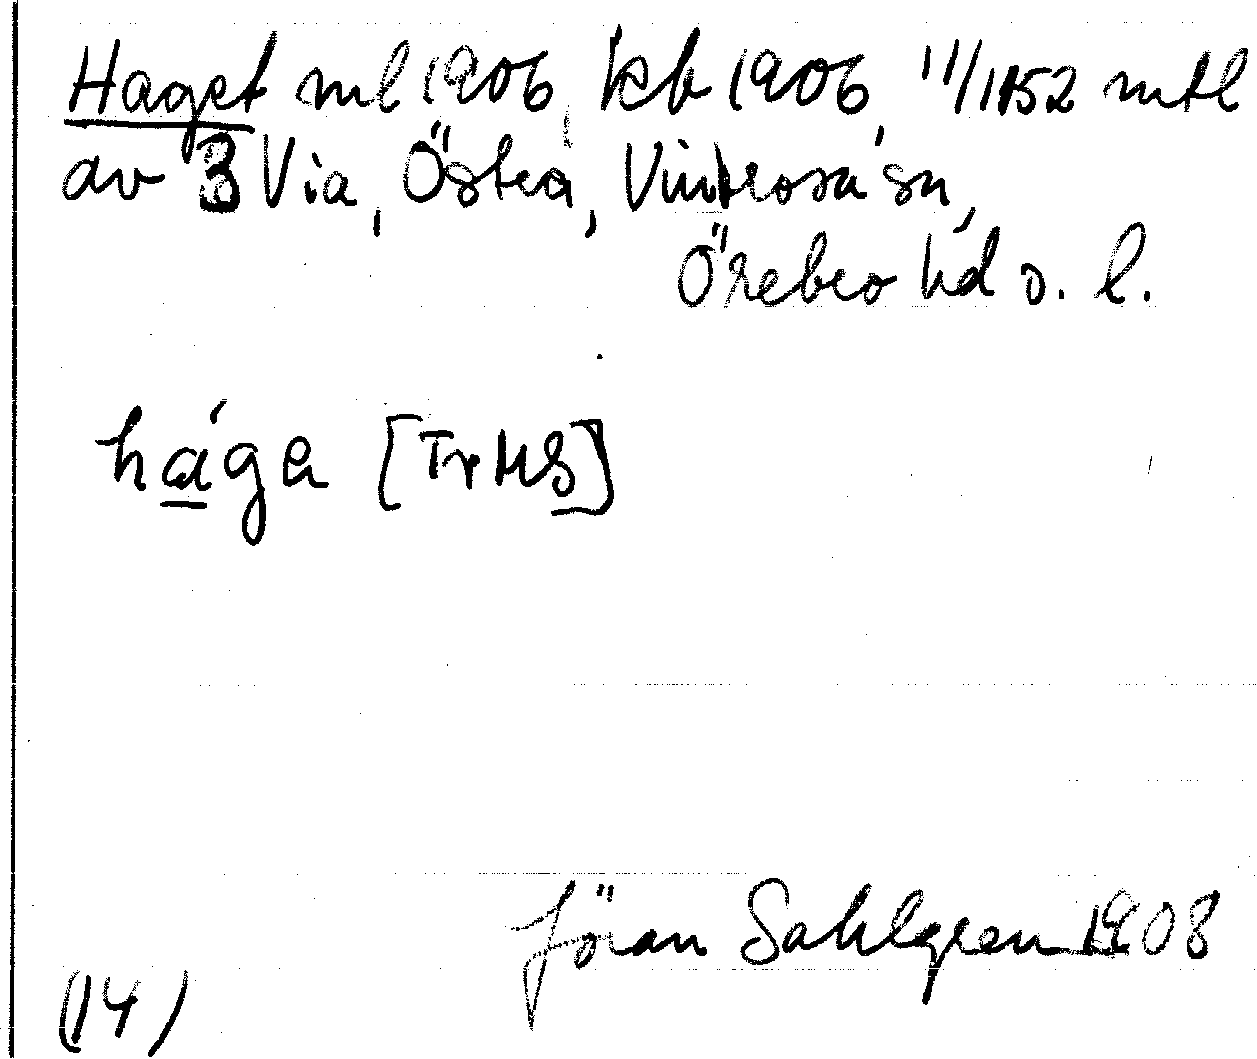 Haget ml 1906 kb 1906 11/1152 mtl
av 3 Via, Östra, Vintrosa sn,
Örebro hd o. l.
há̱ge [Tr HS]
Jöran Sahlgren 1908
(14)